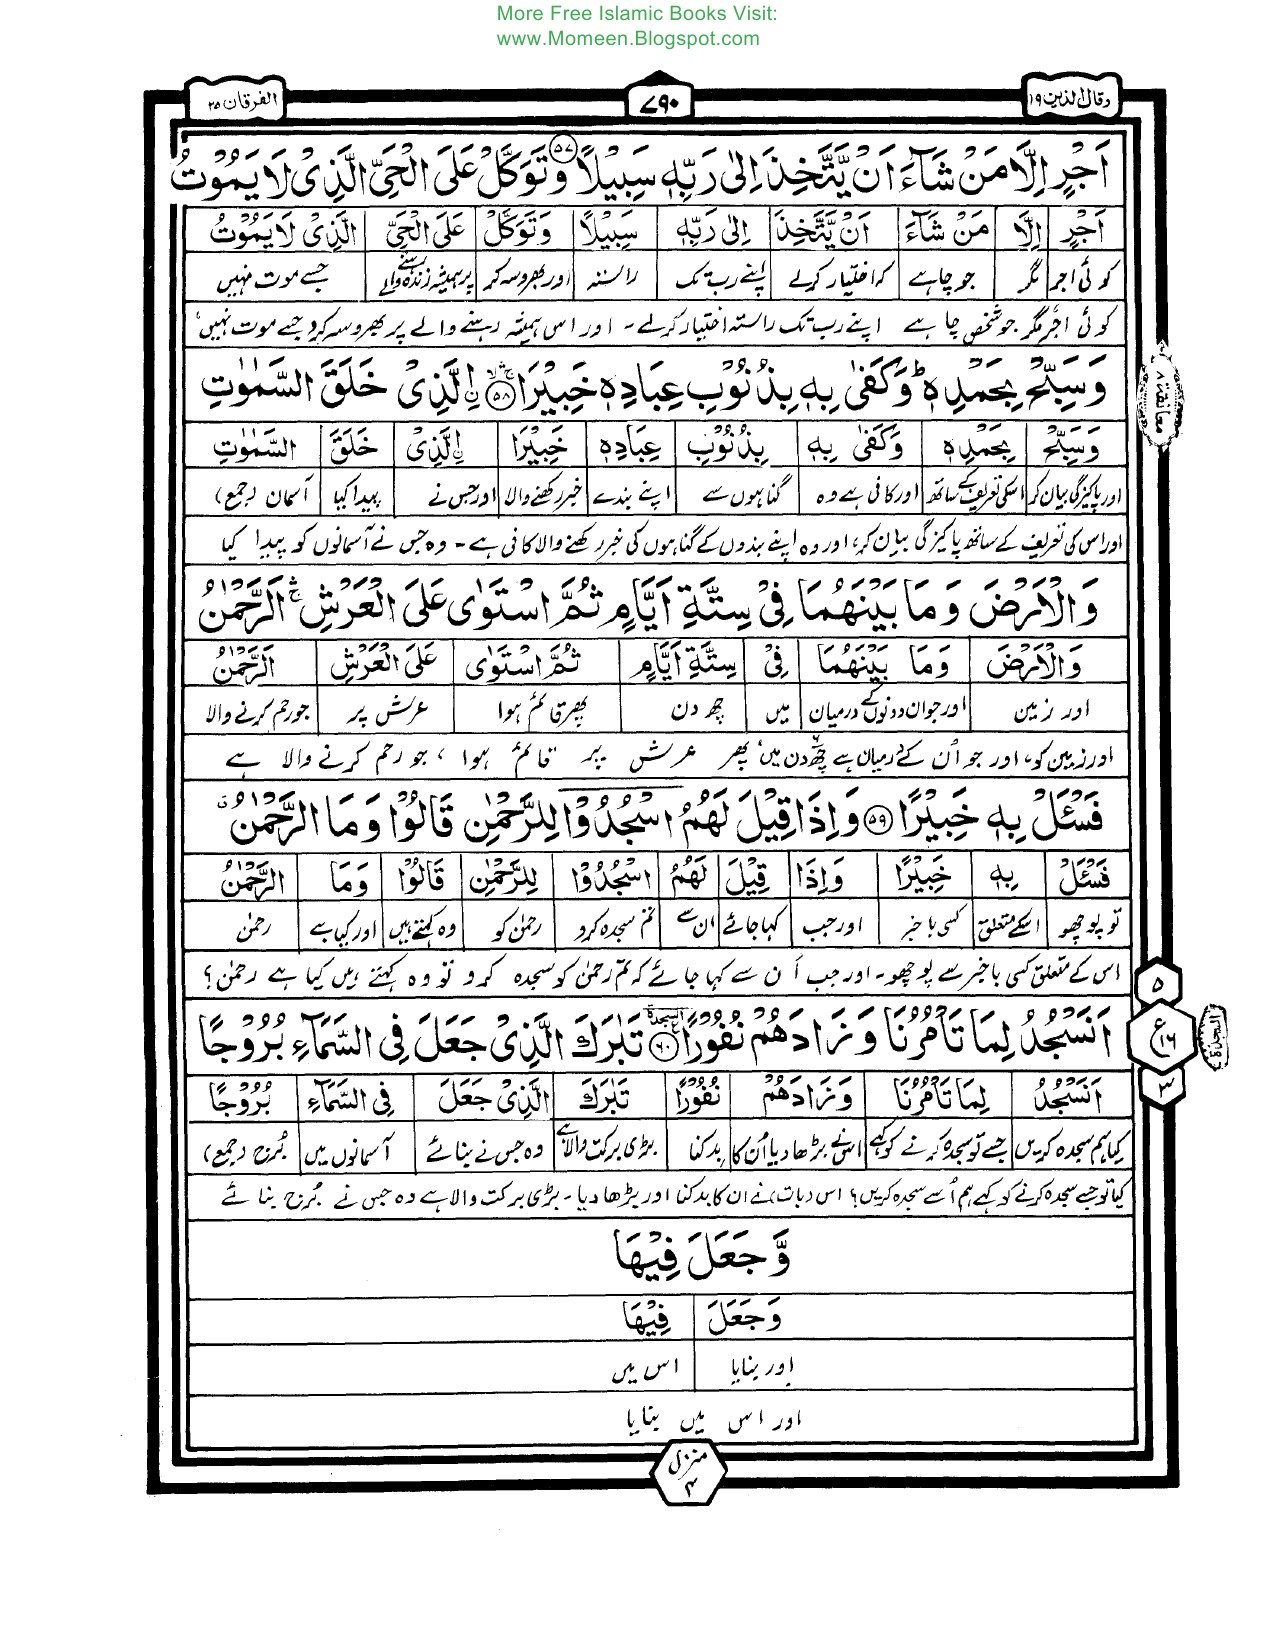 More Free Islamic Books Visit:
www.Momeen.Blogspot.com
وقال الذین ۱۹
۷۹۰
الفرقان ۲۵
اَجْرٍ اِلَّا مَنْ شَآءَ اَنْ یَّتَّخِذَ اِلٰی رَبِّهٖ سَبِیْلًا ۵۷ وَتَوَکَّلْ عَلَی الْحَیِّ الَّذِیْ لَا یَمُوْتُ
اَجْرٍ اِلَّا مَنْ شَآءَ اَنْ یَّتَّخِذَ اِلٰی رَبِّهٖ سَبِیْلًا وَتَوَکَّلْ عَلَی الْحَیِّ الَّذِیْ لَا یَمُوْتُ
کوئی اجر مگر جو چاہے کہ اختیار کرلے اپنے رب تک راستہ اور بھروسہ کر پر ہمیشہ زندہ رہنے والے جسے موت نہیں
کوئی اجر مگر جو شخص چاہے اپنے رب تک راستہ اختیار کرلے۔ اور اس ہمیشہ رہنے والے پر بھروسہ کرو جسے موت نہیں،
وَسَبِّحْ بِحَمْدِهٖ ؕ وَکَفٰی بِهٖ بِذُنُوْبِ عِبَادِهٖ خَبِیْرَا ۵۸ ۨالَّذِیْ خَلَقَ السَّمٰوٰتِ
معانقة ۸
وَسَبِّحْ بِحَمْدِهٖ وَکَفٰی بِهٖ بِذُنُوْبِ عِبَادِهٖ خَبِیْرَا ۨالَّذِیْ خَلَقَ السَّمٰوٰتِ
اور پاکیزگی بیان کر اسکی تعریف کے ساتھ اور کافی ہے وہ گناہوں سے اپنے بندے خبر رکھنے والا اور جس نے پیدا کیا آسمان (جمع)
اور اس کی تعریف کے ساتھ پاکیزگی بیان کر، اور وہ اپنے بندوں کے گناہوں کی خبر رکھنے والا کافی ہے۔ وہ جس نے آسمانوں کو پیدا کیا
وَالْاَرْضَ وَمَا بَیْنَهُمَا فِیْ سِتَّةِ اَیَّامٍ ثُمَّ اسْتَوٰی عَلَی الْعَرْشِ ۛ اَلرَّحْمٰنُ
وَالْاَرْضَ وَمَا بَیْنَهُمَا فِیْ سِتَّةِ اَیَّامٍ ثُمَّ اسْتَوٰی عَلَی الْعَرْشِ اَلرَّحْمٰنُ
اور زمین اور جو ان دونوں کے درمیان میں چھ دن پھر قائم ہوا عرش پر جو رحم کرنے والا
اور زمین کو، اور جو اُن کے درمیان ہے چھ دن میں، پھر عرش پر قائم ہوا، جو رحم کرنے والا ہے
فَسْئَلْ بِهٖ خَبِیْرًا ۵۹ وَاِذَا قِیْلَ لَهُمُ اسْجُدُوْا لِلرَّحْمٰنِ قَالُوْا وَمَا الرَّحْمٰنُ ق
فَسْئَلْ بِهٖ خَبِیْرًا وَاِذَا قِیْلَ لَهُمُ اسْجُدُوْا لِلرَّحْمٰنِ قَالُوْا وَمَا الرَّحْمٰنُ
تو پوچھو اسکے متعلق کسی باخبر اور جب کہا جائے ان سے تم سجدہ کرو رحمٰن کو وہ کہتے ہیں اور کیا ہے رحمٰن
اس کے متعلق کسی باخبر سے پوچھو۔ اور جب اُن سے کہا جائے کہ تم رحمٰن کو سجدہ کرو تو وہ کہتے ہیں کیا ہے رحمٰن؟
اَنَسْجُدُ لِمَا تَاْمُرُنَا وَزَادَهُمْ نُفُوْرًا ۶۰ السجدة تَبٰرَکَ الَّذِیْ جَعَلَ فِی السَّمَآءِ بُرُوْجًا
۵
ع ۱۶
۳
السجدة
اَنَسْجُدُ لِمَا تَاْمُرُنَا وَزَادَهُمْ نُفُوْرًا تَبٰرَکَ الَّذِیْ جَعَلَ فِی السَّمَآءِ بُرُوْجًا
کیا ہم سجدہ کریں جسے تو سجدہ کرنے کو کہے اس نے بڑھا دیا اُن کا بدکنا بڑی برکت والا ہے وہ جس نے بنائے آسمانوں میں بُرج (جمع)
کیا تو جسے سجدہ کرنے کو کہے ہم اُسے سجدہ کریں؟ اس (بات) نے ان کا بدکنا اور بڑھا دیا۔ بڑی برکت والا ہے وہ جس نے بُرج بنائے
وَّجَعَلَ فِیْهَا
وَجَعَلَ فِیْهَا
اور بنایا اس میں
اور اس میں بنایا
منزل ۴